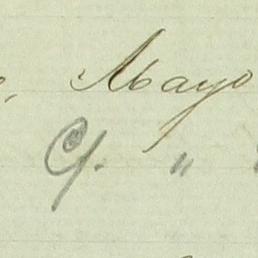 Mayo
Cf. "